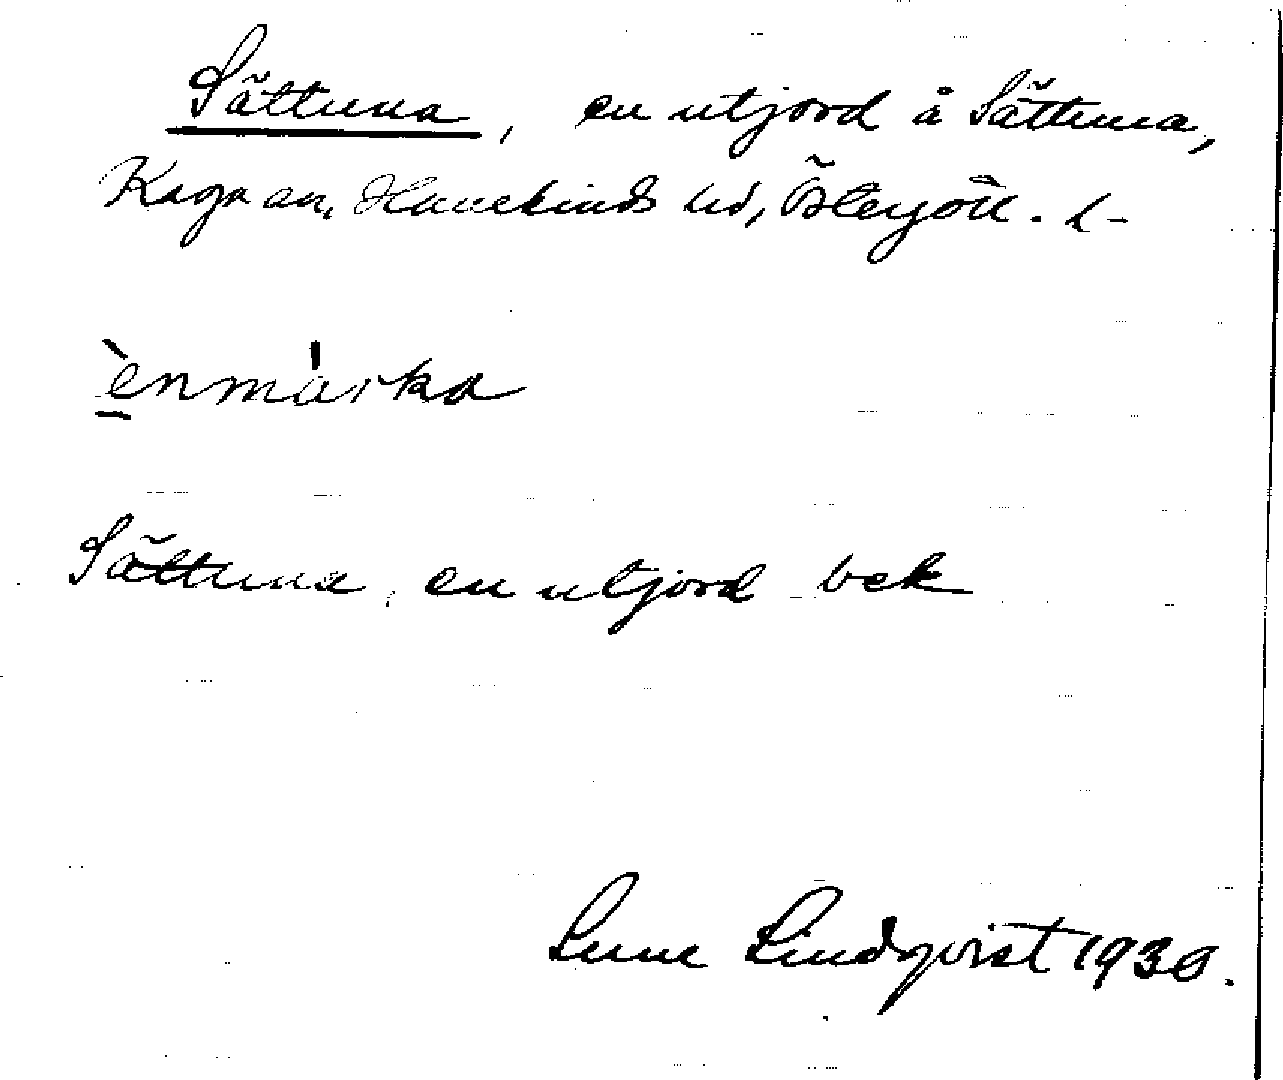 Sättuna, en utjord å Sättuna,
Kaga sn, Hanekinds hd, Östergötl. l-
ènmàrka
Sättuna, en utjord bek
Sune Lindqvist 1930.